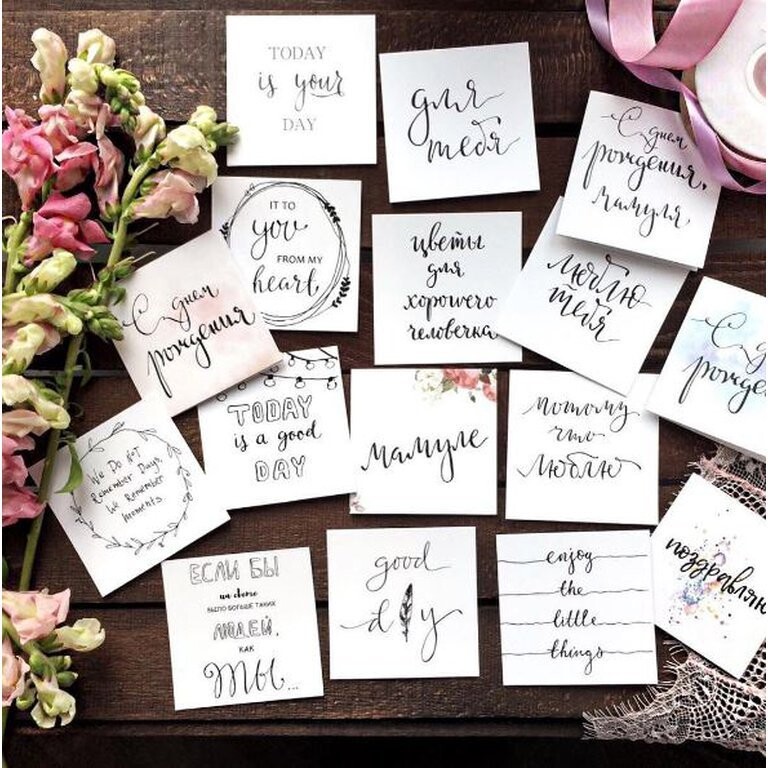 TODAY
is your
DAY
для
тебя
С днем
рождения,
мамуля
IT TO
you
FROM MY
heart
цветы
для
хорошего
человечка
люблю
тебя
С днем
рождения
С
рожден
TODAY
is a good
DAY
мамуле
потому
что
люблю
We Do Not
Remember Days,
We Remember
Moments
ЕСЛИ БЫ
на свете
БЫЛО БОЛЬШЕ ТАКИХ
ЛЮДЕЙ,
КАК
ТЫ...
good
day
enjoy
the
little
things
поздравляю